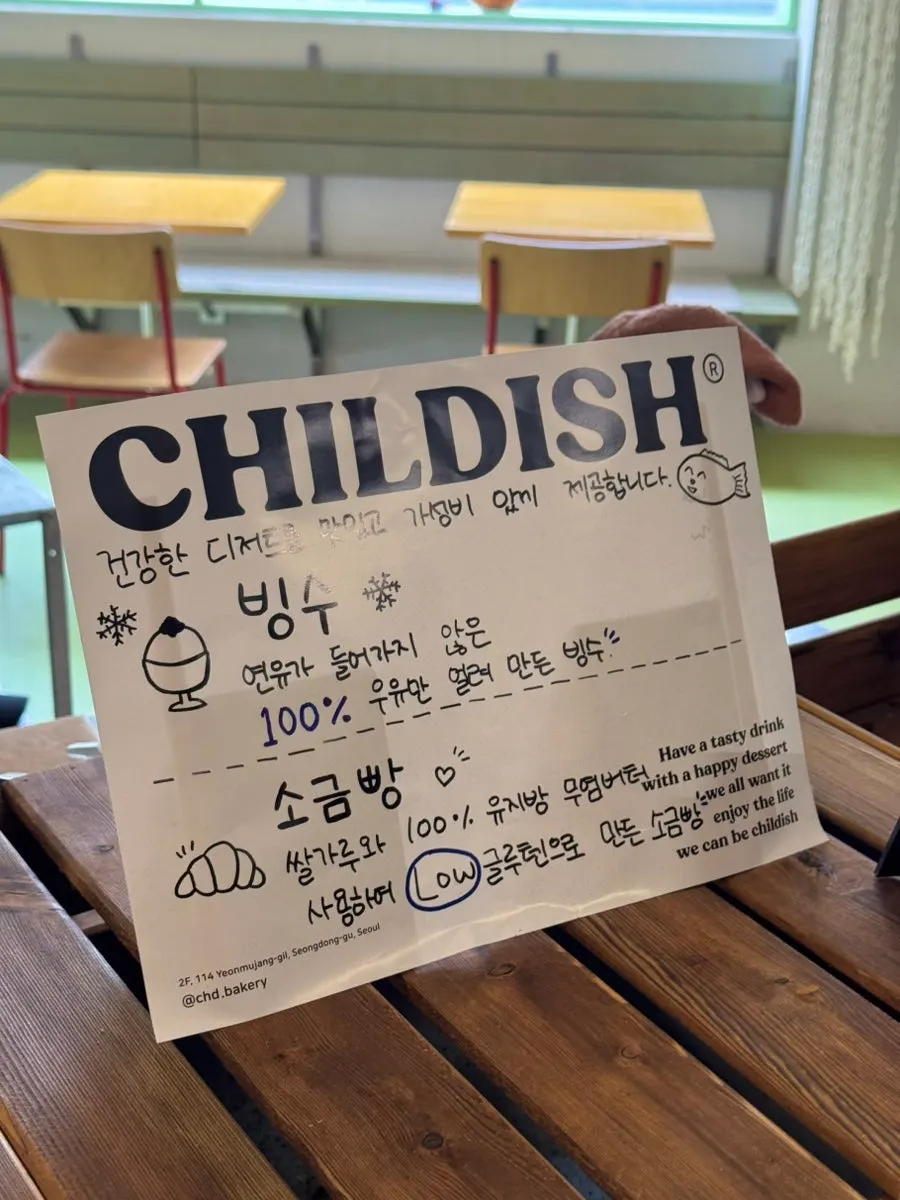 CHILDISH®
건강한 디저트를 맛있고 가성비 있게 제공합니다.
빙수
연유가 들어가지 않은
100% 우유만 얼려 만든 빙수
소금빵
쌀가루와 100% 유지방 무염버터
사용하여 Low글루텐으로 만든 소금빵
Have a tasty drink
with a happy dessert
we all want it
enjoy the life
we can be childish
2F, 114 Yeonmujang-gil, Seongdong-gu, Seoul
@chd.bakery